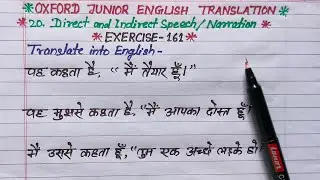 *OXFORD JUNIOR ENGLISH TRANSLATION*
*20. Direct and Indirect Speech/Narration*
*EXERCISE-161*
Translate into English-
वह कहता है, “मैं तैयार हूँ।”
वह मुझसे कहता है, “मैं आपका दोस्त हूँ”
मैं उससे कहता हूँ, “तुम एक अच्छे लड़के हो”